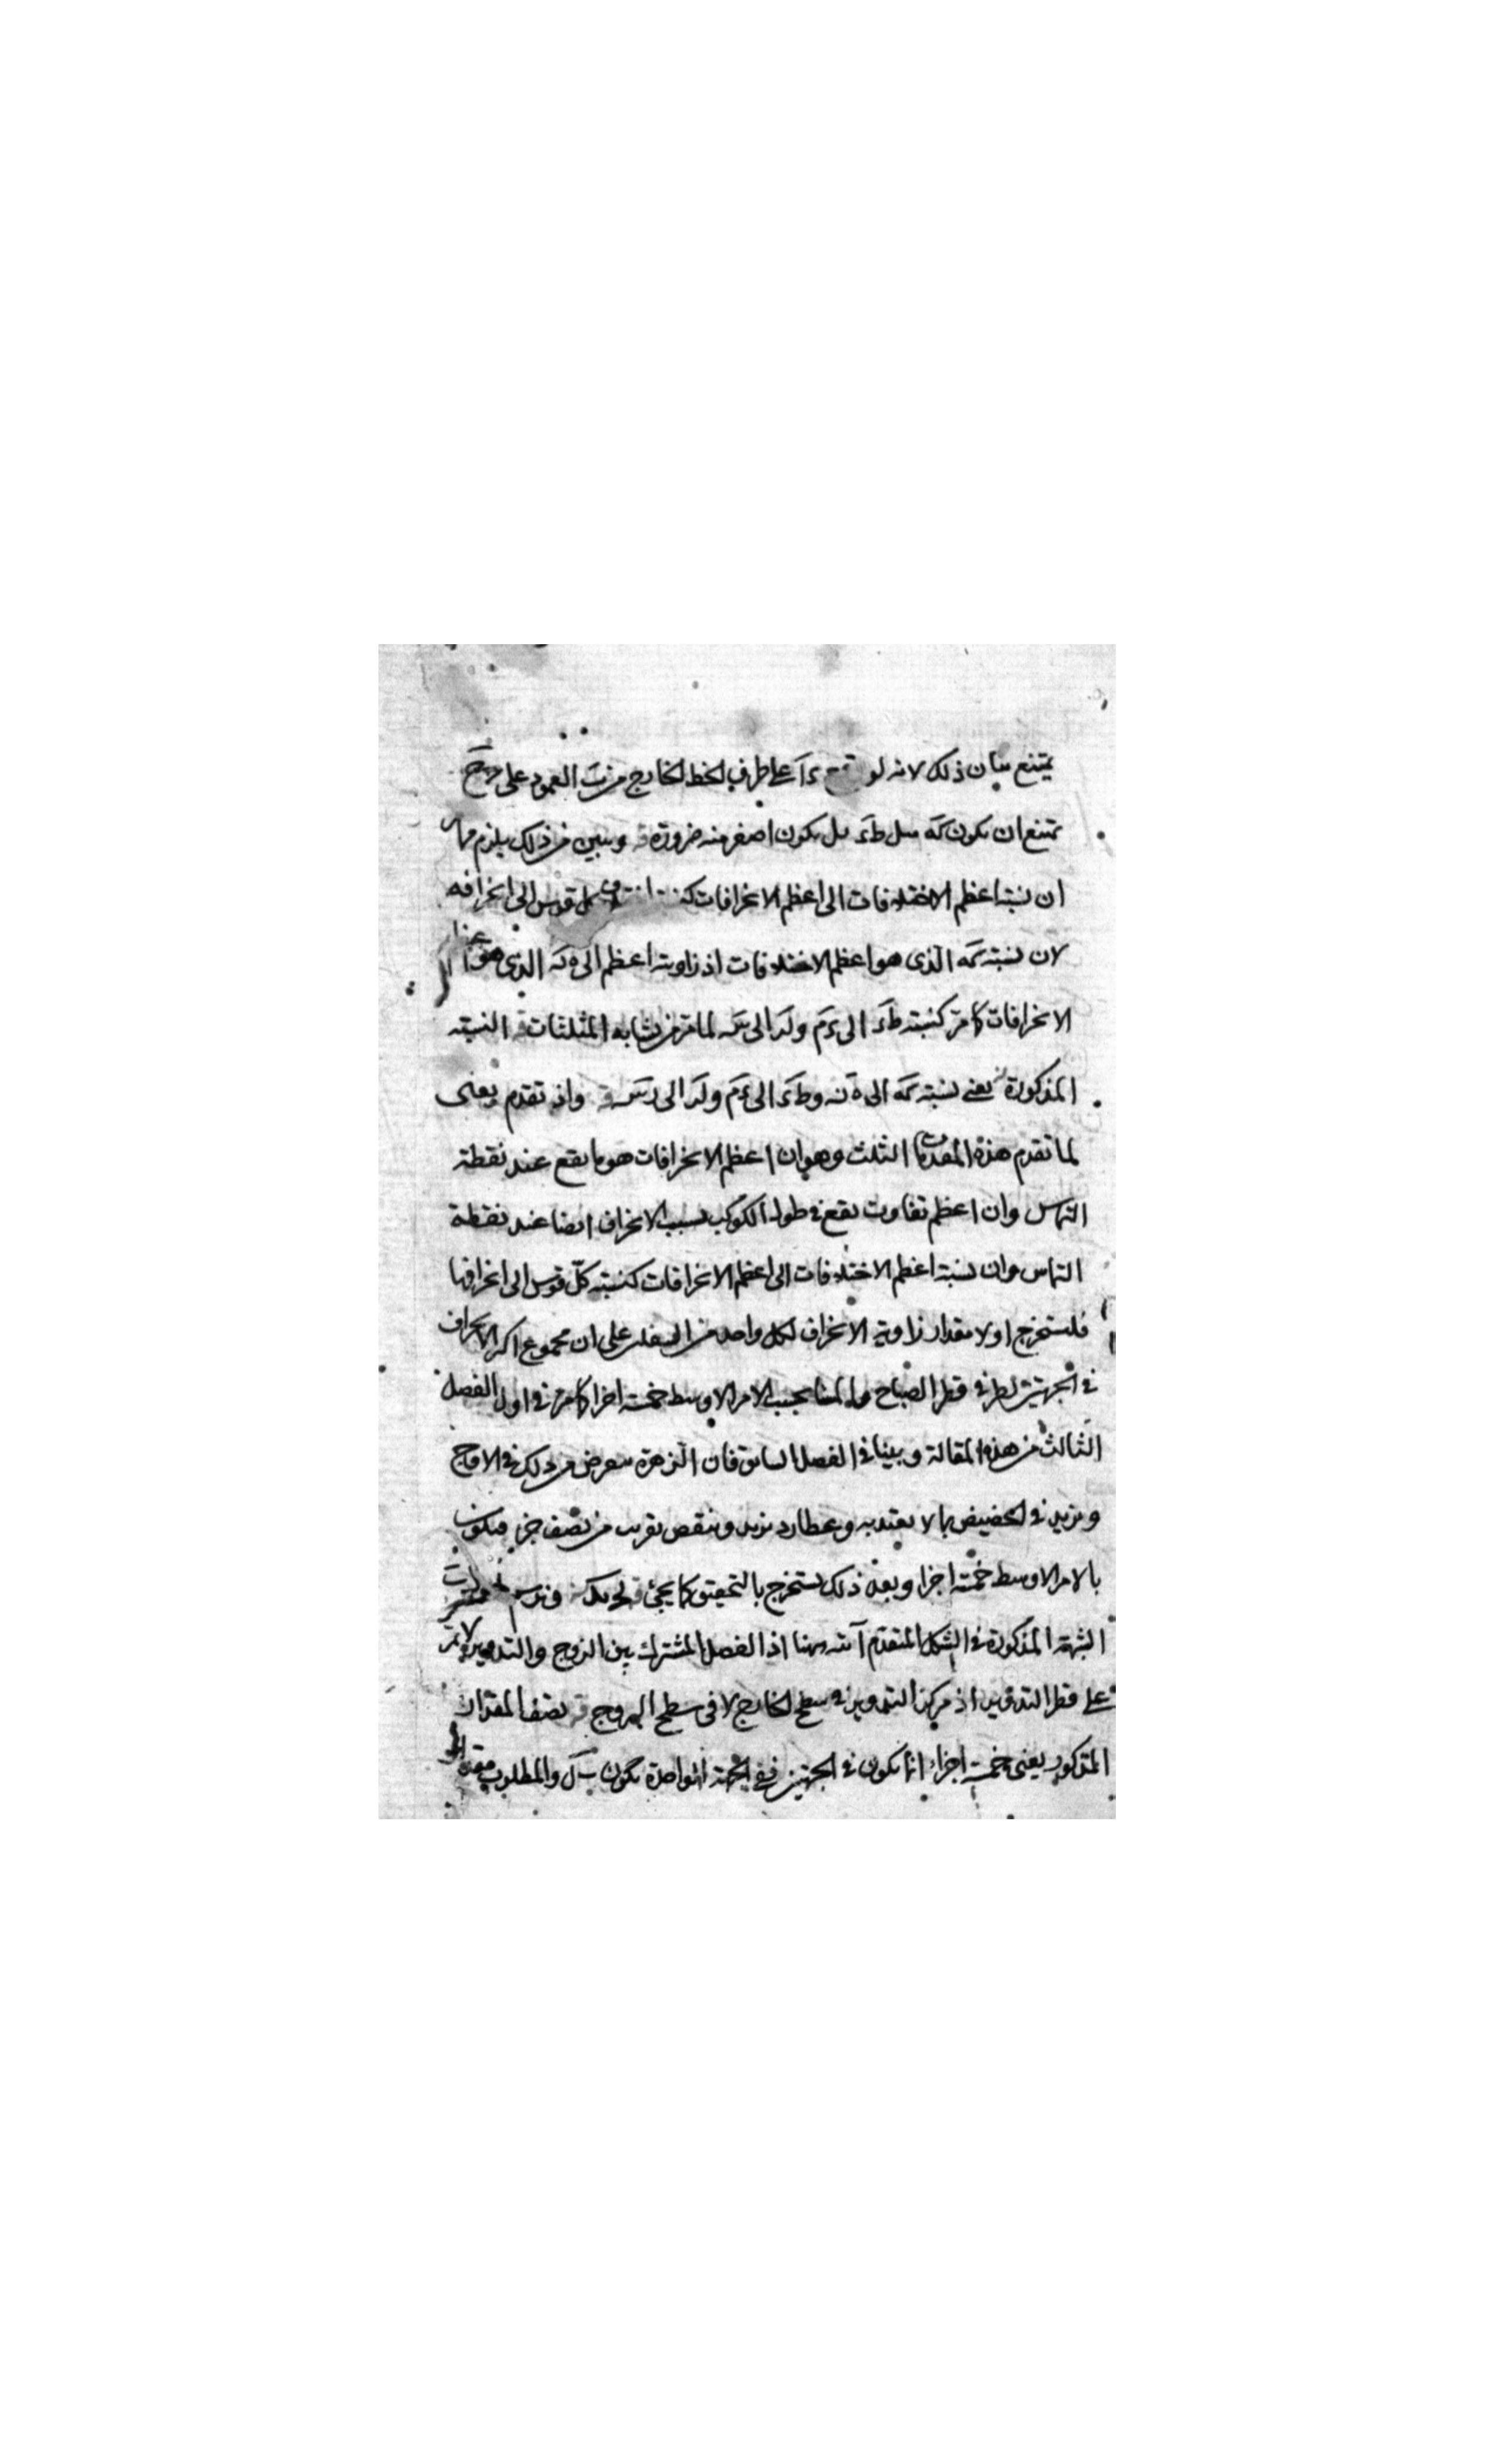 يمتنع بيان ذلك لانه لو ءا على طرف الخط الخارج من ب العمود على جح
يمتنع ان يكون كه مثل طء بل يكون اصغر منه ضرورة وتبين من ذلك يلزم
ان نسبة اعظم الاختلافات الى اعظم الانحرافات كل قوس الى انحرافه
لان نسبة كه الذى هو اعظم الاختلافات اذ زاويته اعظم الى الذى هو
الانحرافات كما مر كنسبة طء الى ءم ولر الى لما مر من تشابه المثلثات النسبة
المذكورة يعنى نسبة كه الى وطء الى ءم ولر الى رس واذ تقدم يعنى
لما تقدم هذه المقدمات الثلث وهو ان اعظم الانحرافات هو ما يقع عند نقطة
التماس وان اعظم تفاوت يقع فى طول الكوكب بسبب الانحراف ايضا عند نقطة
التماس وان نسبة اعظم الاختلافات الى اعظم الانحرافات كنسبة كل قوس الى انحرافها
فلنستخرج اولا مقدار زاوية الانحراف لكل واحد من السفلين على ان مجموع اكثر الانحراف
فى الجهتين قطر الصباح والمسا بحسب الامر الاوسط خمسة اجزا كما مر فى اول الفصل
الثالث من هذه المقالة وبينا فى الفصل السابق فان الزهرة من ذلك فى الاوج
وتزيد فى الحضيض بما لا يعتد به وعطارد يزيد وينقص بقريب من نصف جز فيكون
بالامر الاوسط خمسة اجزا وبعد ذلك نستخرج بالتحقيق كما يجئ
الشبهة المذكورة فى الشكل المتقدم آتية ههنا اذ الفصل المشترك بين البروج والتدوير لا يمر
على قطر التدوير اذ مركز التدوير فى سطح الخارج لا فى سطح البروج نصف المقدار
المذكور يعنى خمسة اجزاء انما يكون فى الجهتين ففى الجهة الواحدة يكون ب ل والمطلوب